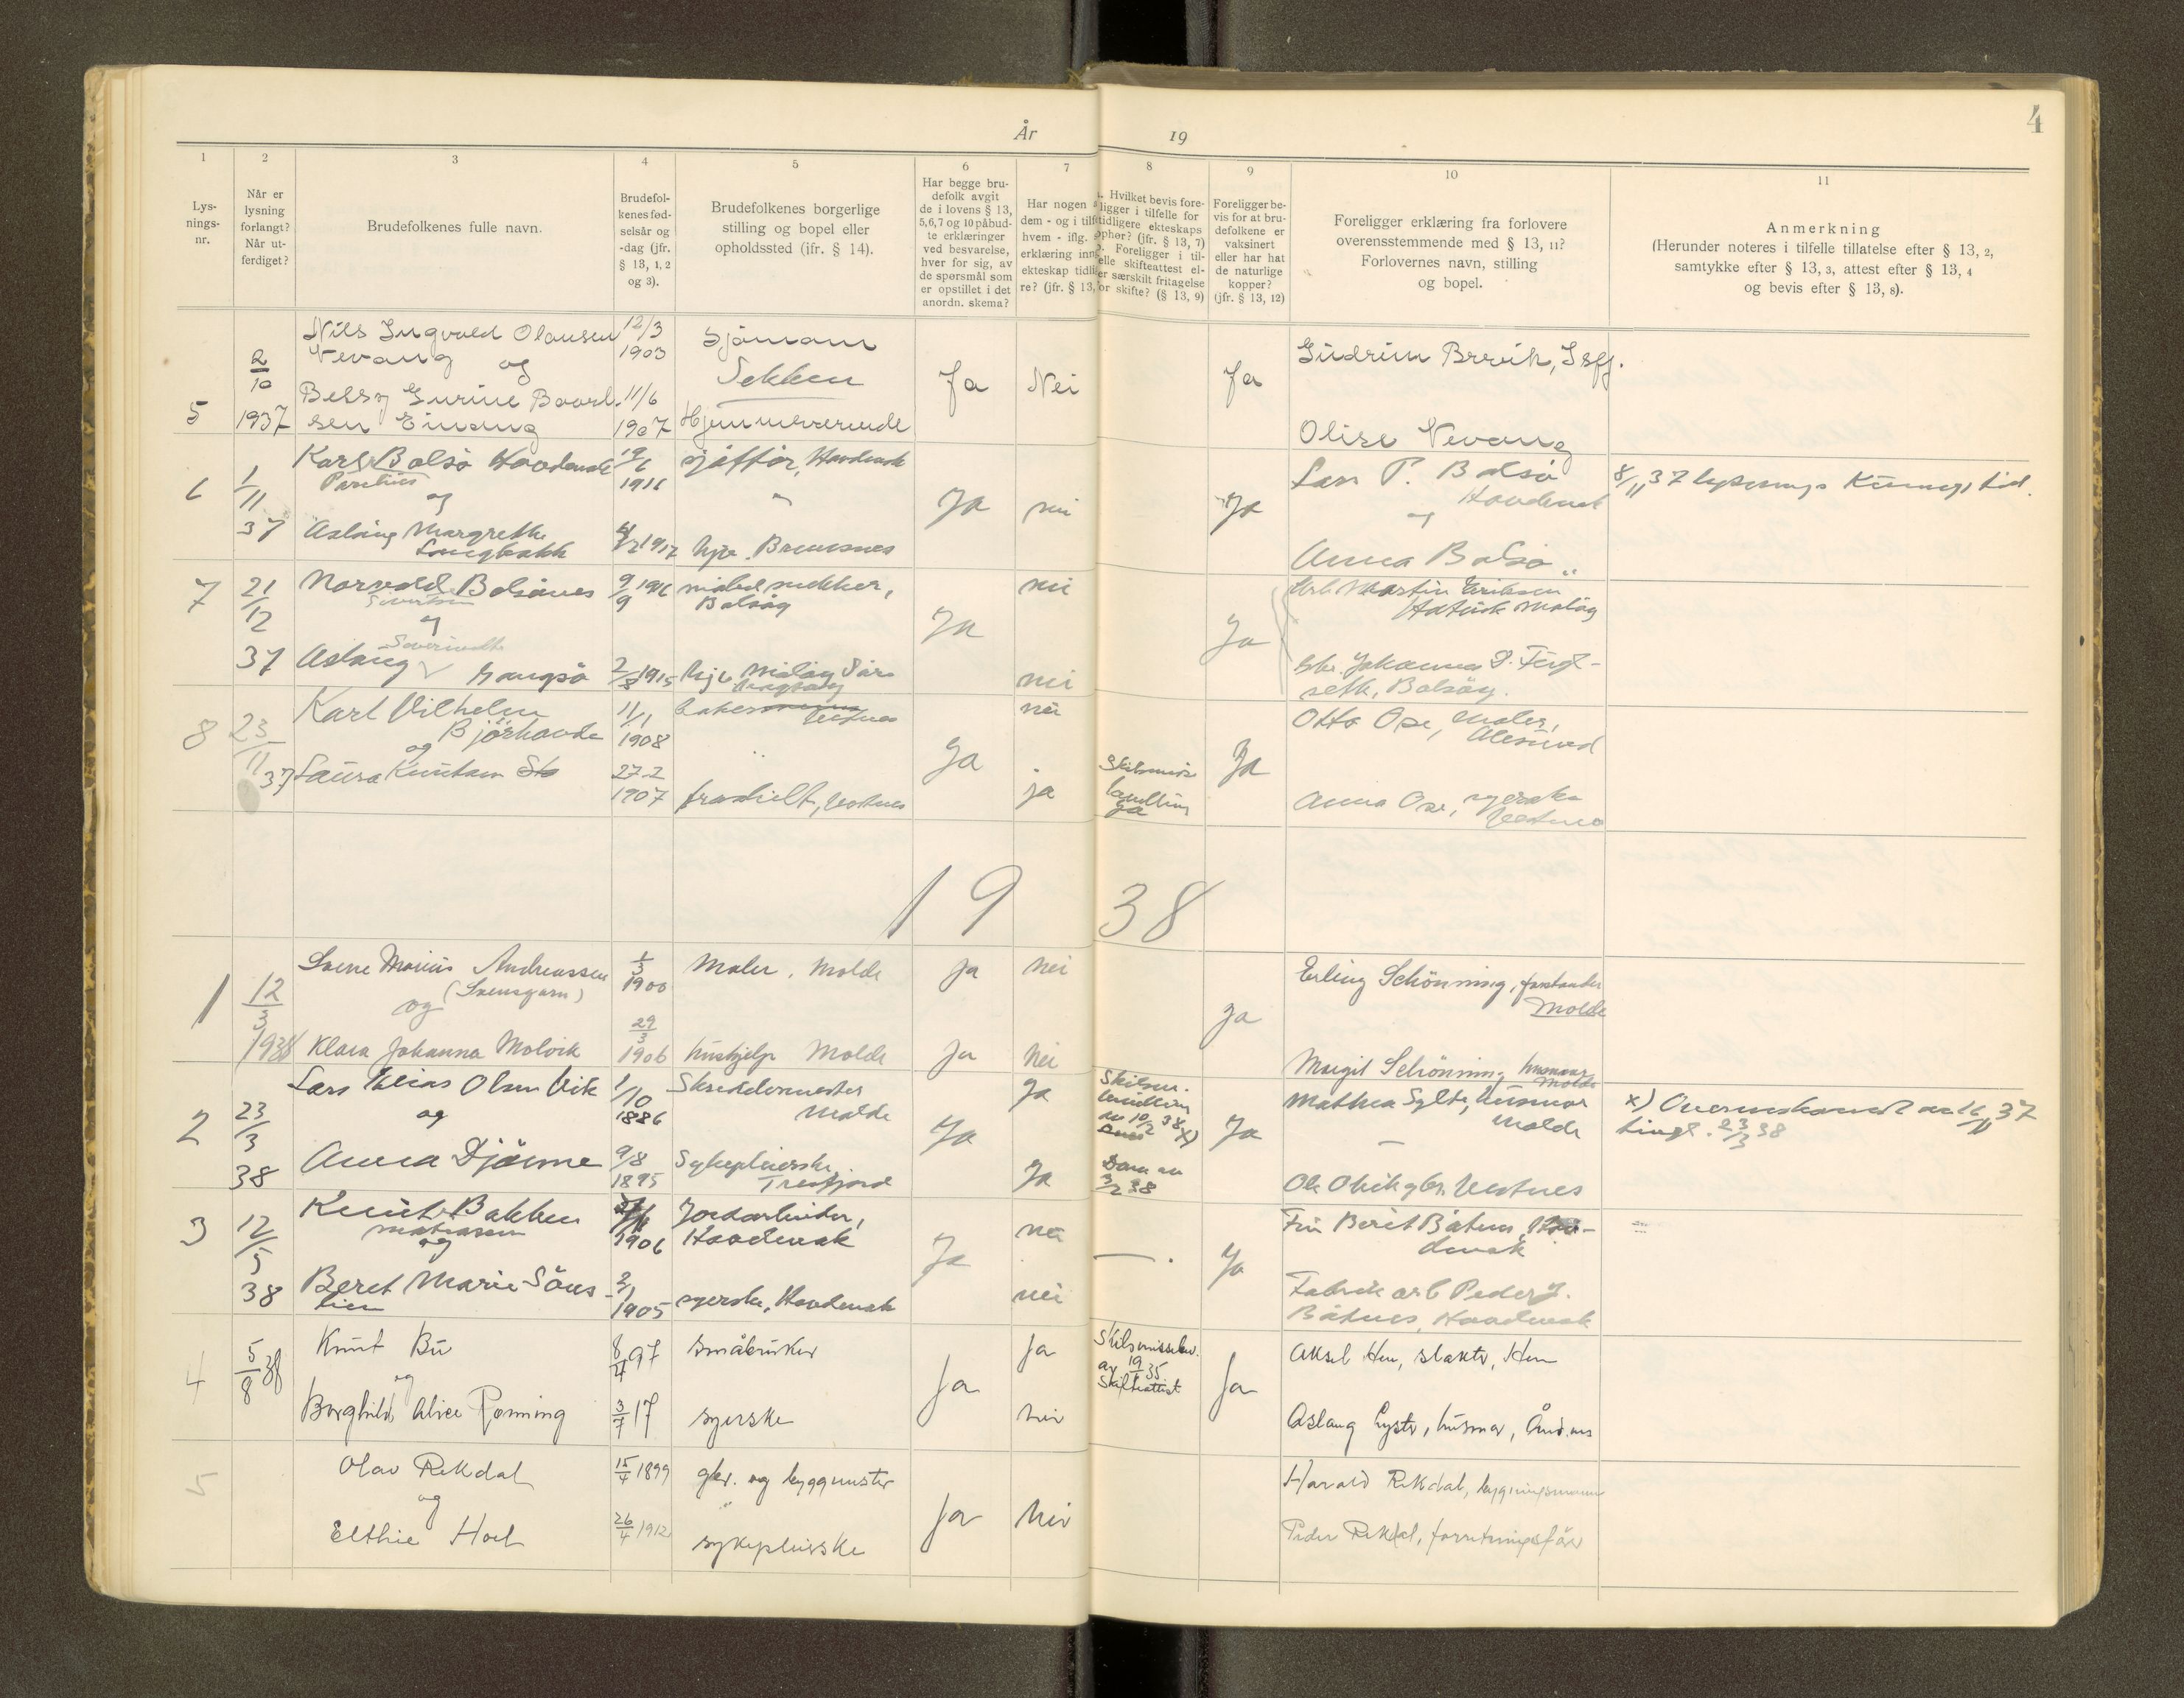 År 19
4
1
2
3
4
5
6
7
8
9
10
11
Lys-
nings-
nr.
Når er
lysning
forlangt?
Når ut-
ferdiget?
Brudefolkenes fulle navn.
Brudefol-
kenes fød-
selsår og
-dag (jfr.
§ 13, 1, 2
og 3).
Brudefolkenes borgerlige
stilling og bopel eller
opholdssted (ifr. § 14).
Har begge bru-
defolk avgit
de i lovens § 13,
5,6,7 og 10 påbud-
te erklæringer
ved besvarelse,
hver for sig, av
de spørsmål som
er opstillet i det
anordn. skema?
Har nogen
dem - og i tilf
hvem - iflg.
erklæring inng
ekteskap tidli
re? (jfr. § 13,
Hvilket bevis fore-
ligger i tilfelle for
tidligere ekteskaps
ophør? (jfr. § 13, 7)
Foreligger i til-
elle skifteattest el-
er særskilt fritagelse
for skifte? (§ 13, 9)
Foreligger be-
vis for at bru-
defolkene er
vaksinert
eller har hat
de naturlige
kopper?
(jfr. § 13, 12)
Foreligger erklæring fra forlovere
overensstemmende med § 13, 11?
Forlovernes navn, stilling
og bopel.
Anmerkning
(Herunder noteres i tilfelle tillatelse efter § 13, 2,
samtykke efter § 13, 3, attest efter § 13, 4
og bevis efter § 13, 8).
5
2/10
1937
Nils Ingvald Olausen
Nevang
og
Betsy Gurine Baarl.
sen Eindug
12/3
1903
11/6
1907
Sjömann
Sekken
Hjemmeværende
Ja
Nei
Ja
Gudrun Brevik,
Olise Nevang
6
1/11
37
Karl Bolsö Hovdenak
og
Aslaug Margrethe
Langbakk
1916
sjåfför, Hovdenak
hjv. Bremsnes
Ja
nei
Ja
Lars P. Bolsö
Hovdenak
og
Anna Bolsö "
8/11 37 lysnings
7
21/12
37
Norvald Bolsönes
Sivertsen
og
Aslaug Gangsö
9/9 1916
1915
Bolsöy
Ja
nei
nei
Ja
Arb. Martin Eriksen
Bolsöy.
8
23/11 37
Karl Vilhelm
Björhovde
og
Laura Knutsen
11/1
1908
27-2
1907
baker
Vestnes
fraskilt, Vestnes
Ja
nei
ja
Ja
Ja
Otto Ose, Maler,
Ålesund
Anna Ose, syerske
Vestnes
1938
1
12/3
1938
Marius Andreassen
(Svensgarn)
og
Klara Johanna Malvik
1/3
1900
29/3
1906
Maler. Molde
hushjelp Molde
ja
ja
nei
nei
ja
Erling Schönning, forstander
Molde
Margit Schönning,
Molde
2
23/3
38
Lars Elias Olsen Vik
og
Anna Djönne
1/10
1886
9/8
1895
Skreddermester
Molde
Sykepleierske
Tresfjord
Ja
Ja
Ja
Skilsm.
bevilling
av 10/2 38 x)
Dom av
3/2 38
Ja
Mathea Sylte, husmor
Molde
Vestnes
x) Overenskomst av 16/11 37
tingl. 23/3 38
3
12/5
38
Knut Bakken
og
Beret Marie Söus-
lien
1906
2/1
1905
Jordarbeider,
Hovdenak
syerske, Hovdenak
Ja
nei
nei
Ja
Fru Berit Båtnes, Hov-
denak
Fabrik arb Peder J.
Båtnes, Hovdenak
4
5/8 38
Knut Bu
og
Borghild Alice Rønning
8/4 97
3/7 17
småbruker
syerske
Ja
Ja
nei
Skilsmissebev.
av 19/35
Skifteattest
Ja
Aksel Hen, slakter, Hen
Aslaug Lyster, husmor, Åndalsnes
5
Olav Rekdal
og
Elthie Hoel
15/4 1899
26/4 1912
gbr. og byggmester
sykepleierske
Ja
Nei
Harald Rekdal, bygningsmann
Peder Rekdal, forretningsfører